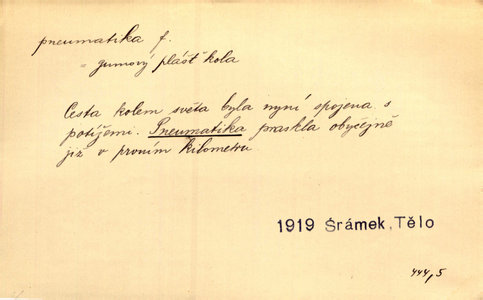 pneumatika f.
= gumový plášť kola
Cesta kolem světa byla nyní spojena s
potížemi. Pneumatika praskla obyčejně
již v prvním kilometru
1919 Šrámek, Tělo
444,5